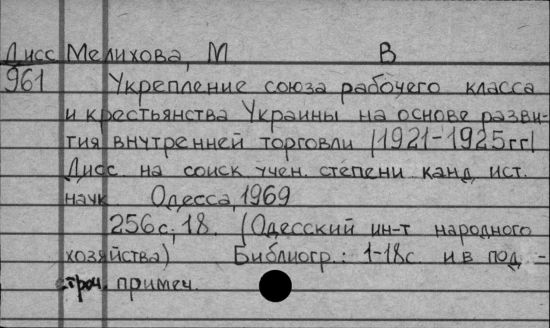 Дисс Мелихова, М В
961 Укрепление союза рабочего класса
и крестьянства Украины на основе разви-
тия внутренней торговли /1921-1925гг/
Дисс. на соиск учен. степени канд. ист.
наук Одесса, 1969
256с., 18. (Одесский ин-т народного
хозяйства) Библиогр.: 1-18с. и в под -
строч. примеч.